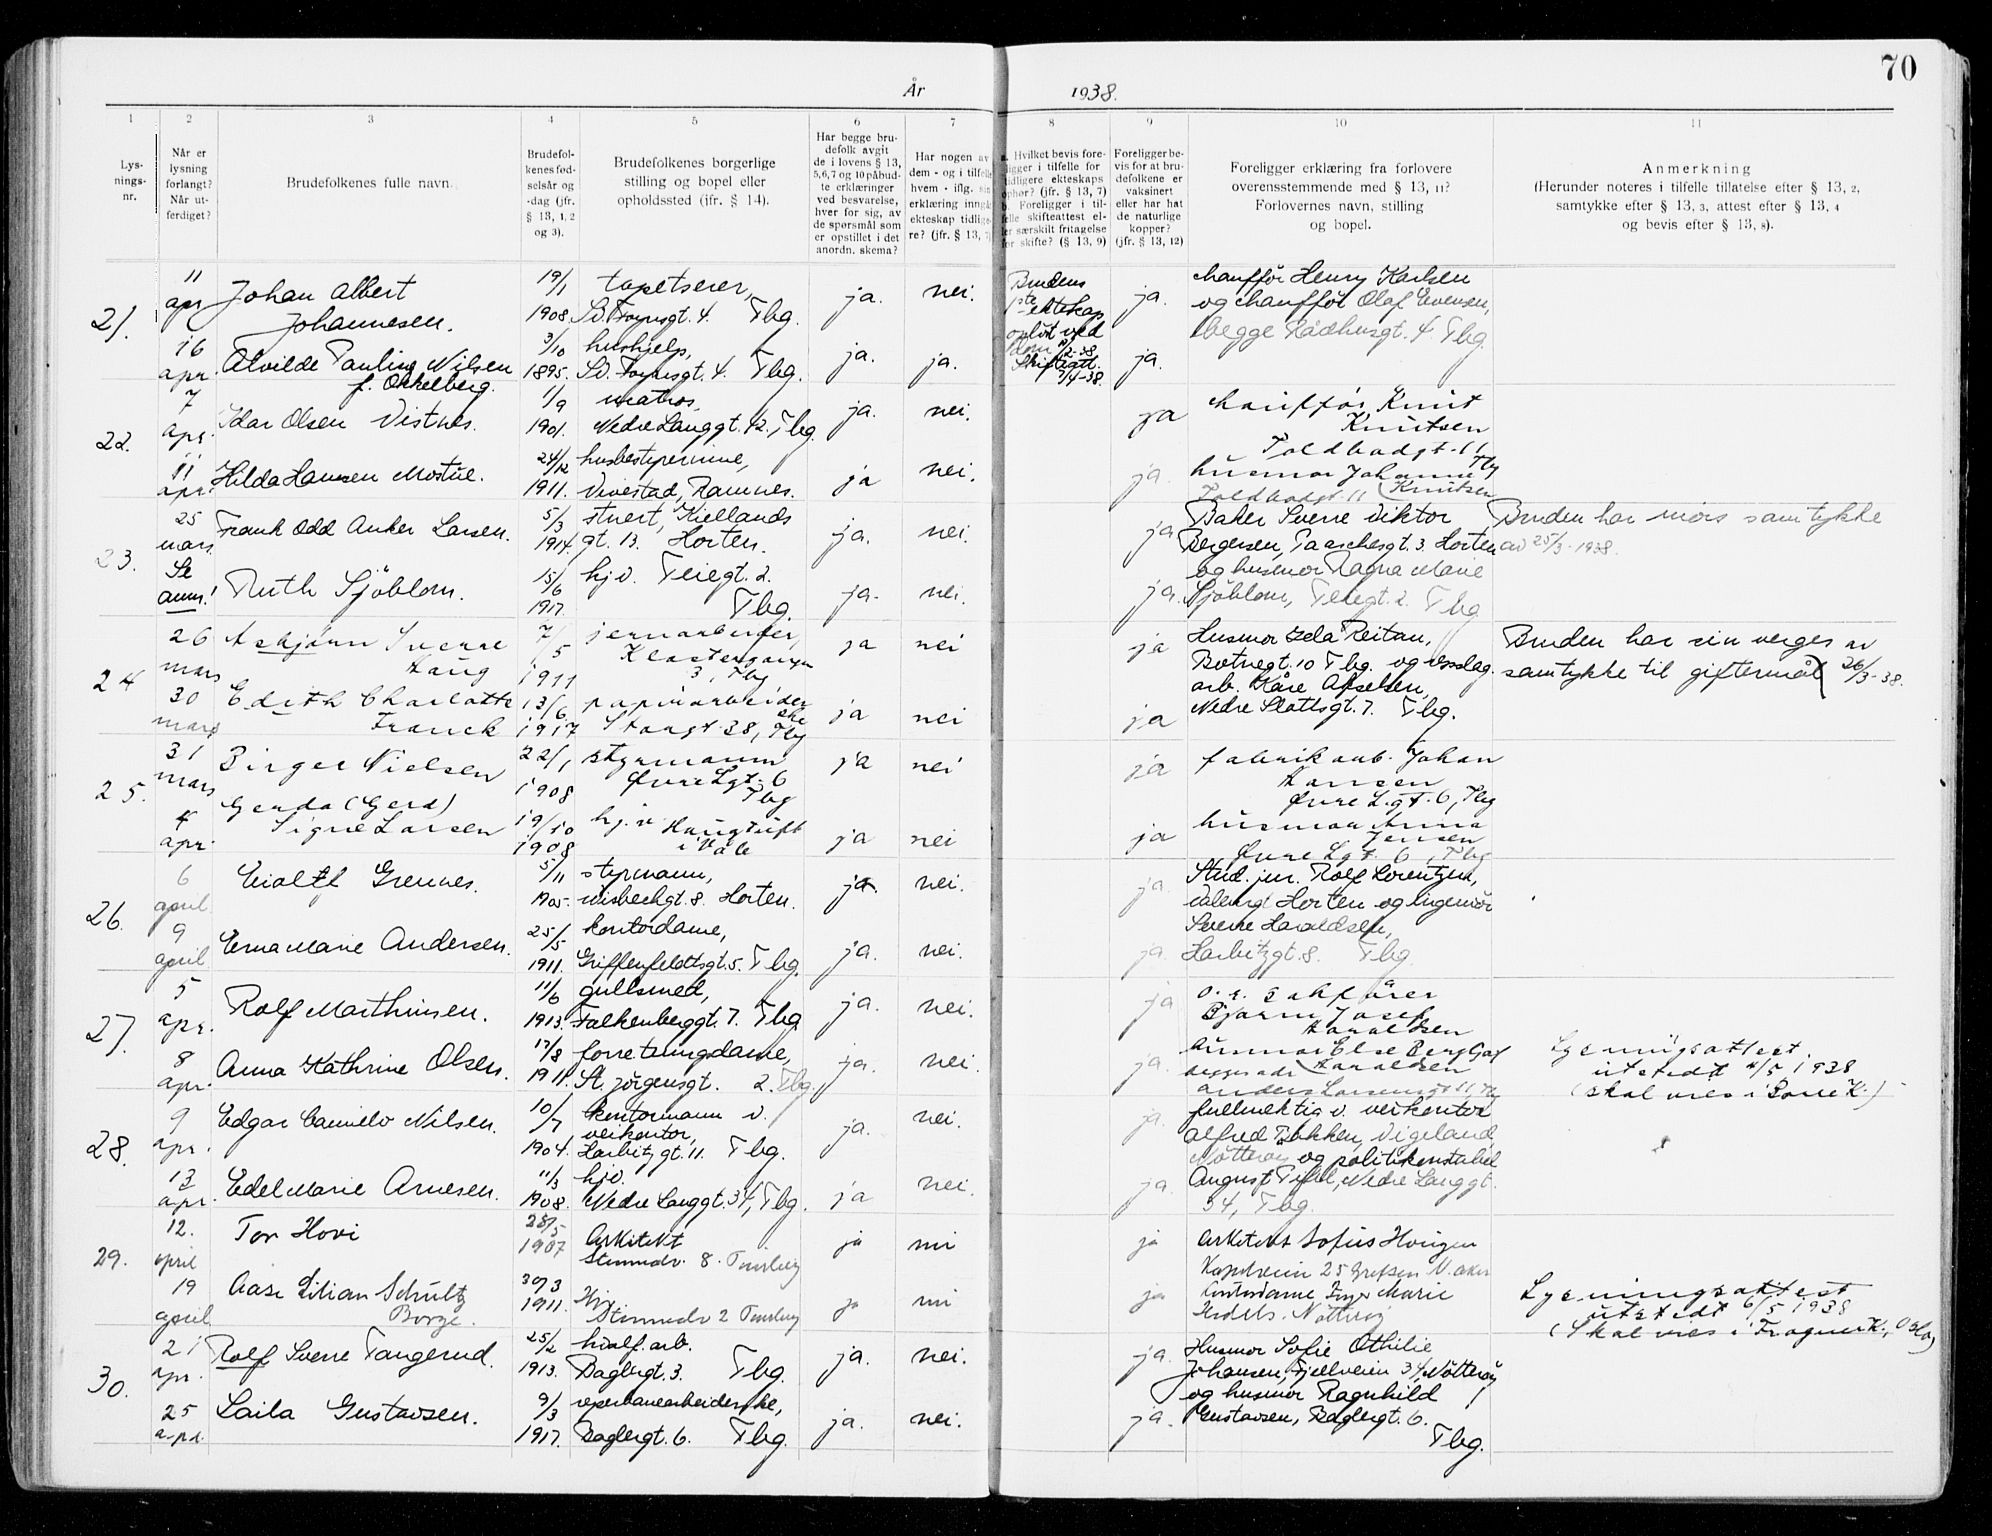 År 1938.
70
1 2 3 4 5 6 7 8 9 10 11
Lys-
nings-
nr.
Når er
lysning
forlangt?
Når ut-
ferdiget?
Brudefolkenes fulle navn.
Brudefol-
kenes fød-
selsår og
-dag (jfr.
§ 13, 1, 2
og 3).
Brudefolkenes borgerlige
stilling og bopel eller
opholdssted (jfr. § 14).
Har begge bru-
defolk avgit
de i lovens § 13,
5,6,7 og 10 påbud-
te erklæringer
ved besvarelse,
hver for sig, av
de spørsmål som
er opstillet i det
anordn. skema?
Har nogen av
dem - og i tilfelle
hvem - iflg. sin
erklæring inngå
ekteskap tidlige-
re? (jfr. § 13, 7)
a. Hvilket bevis fore-
ligger i tilfelle for
tidligere ekteskaps
ophør? (jfr. § 13, 7)
b. Foreligger i til-
felle skifteattest el-
ler særskilt fritagelse
for skifte? (§ 13, 9)
Foreligger be-
vis for at bru-
defolkene er
vaksinert
eller har hat
de naturlige
kopper?
(jfr. § 13, 12)
Foreligger erklæring fra forlovere
overensstemmende med § 13, 11?
Forlovernes navn, stilling
og bopel.
Anmerkning
(Herunder noteres i tilfelle tillatelse efter § 13, 2,
samtykke efter § 13, 3, attest efter § 13, 4
og bevis efter § 13, 8).
21.
11
apr
Johan Albert
Johannesen.
19/1
1908
tapetserer,
Sv. Foynsgt. 4. Tbg.
ja.
nei.
Brudens
1ste ekteskap
opløst ved
dom
Skifteatt.
7/4-38.
ja.
chauffør Henry Karlsen
og chauffør Olaf Evensen,
begge Rådhusgt. 4. Tbg.
16
apr.
Alvilde Pauline Nilsen
f. Okkelberg.
3/10
1895.
hushjelp,
Sv. Foynsgt. 4. Tbg.
ja.
ja.
ja.
22.
7
apr.
Idar Olsen Vistnes.
1/9
1901.
matros,
Nedre Langgt. 12. Tbg.
ja.
nei.
ja
chauffør Knut
Knutsen
Toldbodgt. 11
Tbg
11
apr.
Hilda Hansen Mostue.
24/12
1911.
husbestyrerinne,
Vivestad, Ramnes.
ja
nei.
ja.
husmor Johanne
Toldbodgt. 11 Knutsen
23.
25
mars
Frank Odd Anker Larsen.
5/3
1914.
stuert, Kiellands
gt. 13. Horten.
ja.
nei.
ja
Baker Sverre Viktor
Bergersen, Paaschesgt. 3. Horten
og husmor Ragna Marie
Sjöblom, Teiegt. 2. Tbg.
Bruden har mors samtykke
av 25/3-1938.
Se
anm!
Ruth Sjöblom.
15/6
1917.
hjv. Teiegt. 2.
Tbg.
ja.
nei.
ja.
24
26
mars
Asbjörn Sverre
Haug
7/5
1911
jernarbeider,
Klostergaten
3, Tbg
ja
nei
ja
Husmor Ida Reitan,
Botnegt. 10 Tbg. og
arb. Kåre Akselsen,
Nedre Slottsgt. 7. Tbg.
Bruden har sin verges
samtykke til giftermål av 26/3-38.
30
mars
Edith Charlotte
Franck
13/6
1917
papirarbeider
ske
Storgt. 38, Tbg
ja
nei
ja
25.
31
mars
Birger Nielsen
22/1
1908
styrmann
Øvre Lgt. 6
Tbg
ja
nei
ja
fabrikarb. Johan
Hansen
Øvre Lgt. 6, Tbg
4
apr.
Gerda (Gerd)
Signe Larsen
19/10
1908
hj. v
Haugtuft
i Våle
ja
nei
ja
husmor Anna
Jensen
Øvre Lgt. 6, Tbg
26.
6
april
Eialff Grennes.
5/11
1905.
styrmann,
8. Horten.
ja.
nei.
ja.
Stud. jur. Rolf Lorentzen,
Horten og ingeniør
Sverre Haraldsen,
Harbitzgt. 8. Tbg.
9
april
Erna Marie Andersen.
25/5
1911.
kontordame,
Griffenfeldtsgt. 5. Tbg.
ja.
nei.
ja.
27.
5
apr.
Rolf Marthinsen.
11/6
1913.
gullsmed,
Falkenberggt. 7. Tbg
ja.
nei.
ja
o. r. sakfører
Bjarne Josef
Haraldsen
8
apr.
Anna Kathrine Olsen.
17/8
1911.
forretningsdame,
St. Jörgensgt. 2. Tbg.
ja.
nei.
ja.
husmor Else Berg
Haraldsen
Anders Larsensgt 11, Tbg
Lysningsattest
utstedt 4/5 1938
(skal vies i Borre K.)
28.
9
apr.
Edgar Camilo Nilsen.
10/7
1904.
kontormann v.
veikontor,
Harbitzgt. 11. Tbg.
ja.
nei.
ja.
fullmektig v. veikontor
Alfred Bakken, Vigeland,
Nötterøy og politikonstabel
August, Nedre Langgt.
34, Tbg.
13
apr.
Edel Marie Arnesen.
11/3
1908.
hjv.
Nedre Langgt. 34, Tbg.
ja
nei.
ja.
29.
12.
april
Tor Hovi
28/5
1907
Arkitekt
8. Tönsberg
ja
nei
ja
Arkitekt Sofus Hougen
25 Grefsen V. aker
Kontordame Inger Marie
Nötterøy
19
april
Aase Lilian Schultz
Borge.
30/3
1911.
Hjv
2 Tönsberg
ja
nei
ja
Lysningsattest
utstedt 6/5 1938
(Skal vies i Frogner K., Oslo)
30.
21
apr.
Rolf Sverre Tangerud.
25/2
1913.
hvalf. arb.
Baglergt. 3. Tbg.
ja.
nei.
ja.
Husmor Sofie Othilie
Johansen, Fjellveien 34, Nötteröy
og husmor Ragnhild
Gustavsen, Baglergt. 6.
Tbg.
25
apr.
Laila Gustavsen.
9/3
1917.
reperbanearbeiderske,
Baglergt. 6. Tbg.
ja.
nei.
ja.